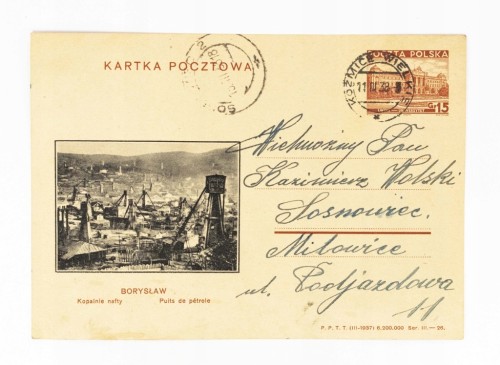 KARTKA POCZTOWA
POCZTA POLSKA
KOŹMICE WIELKIE
GR 15
Wielmożny Pan
Kazimierz Wolski
Sosnowiec.
Milowice
ul. Podjazdowa
11
BORYSŁAW
Kopalnie nafty Puits de pétrole
P. P. T. T. (III-1937) 6.200.000 Ser. III.—